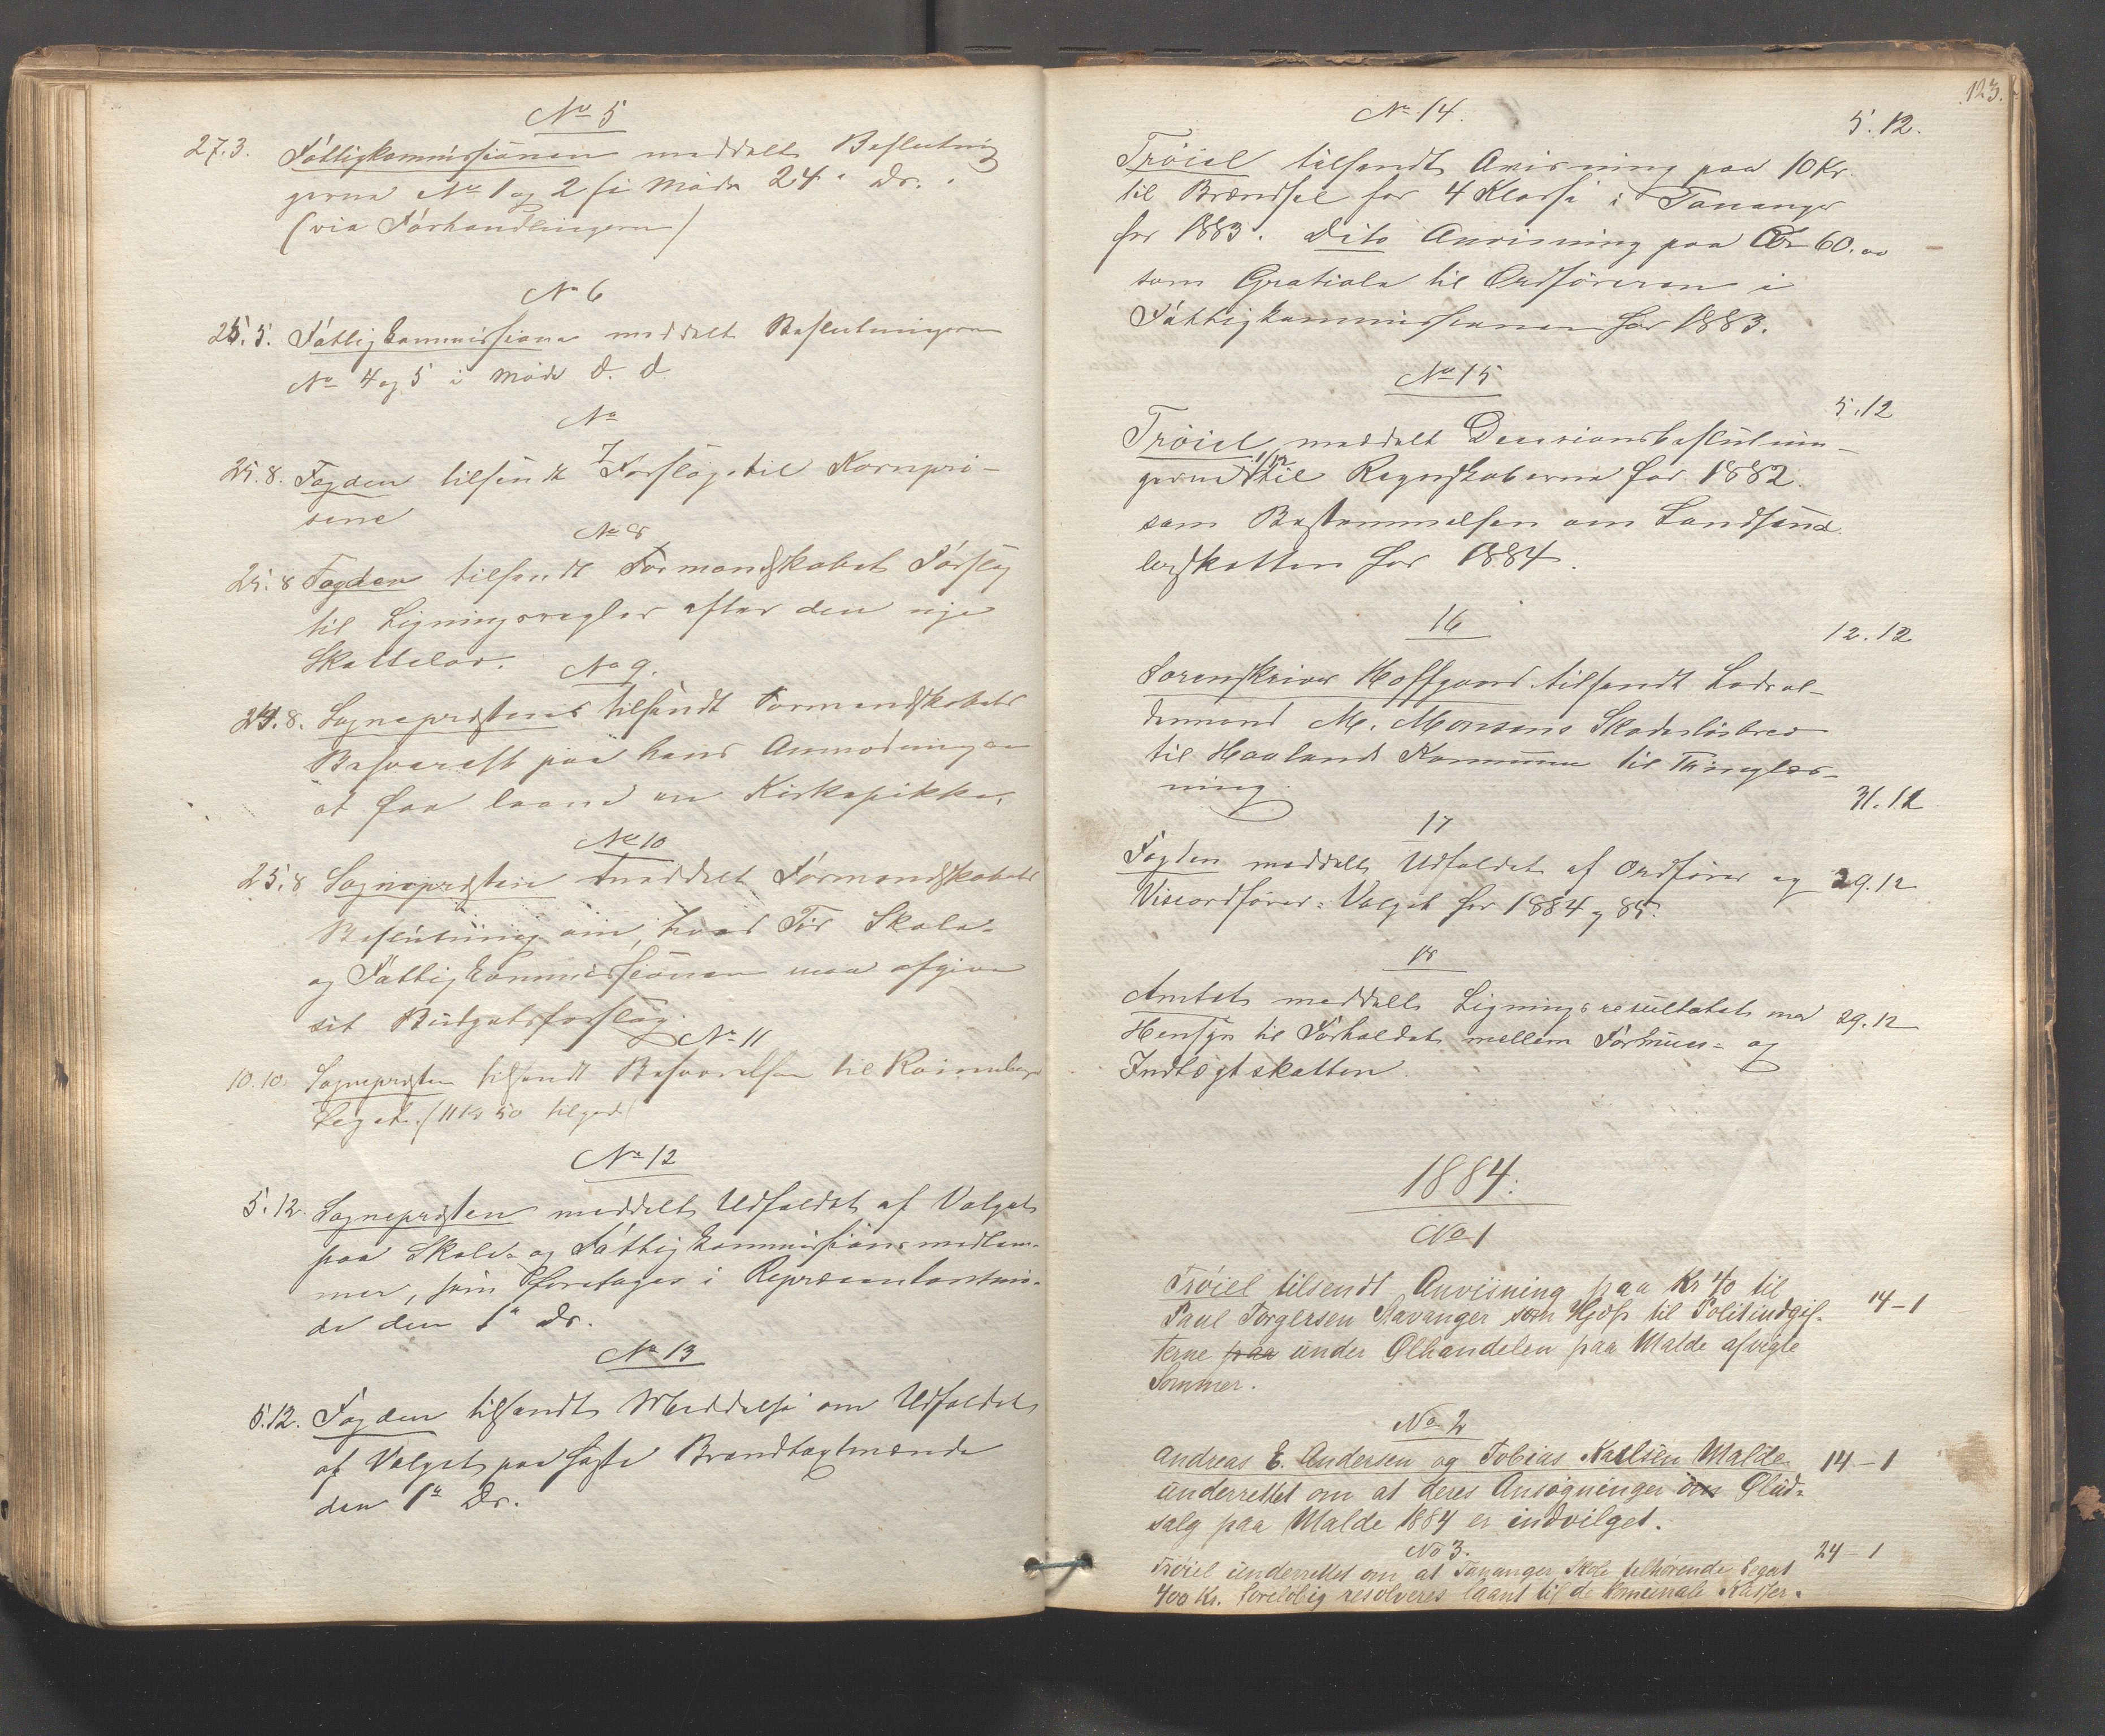 No 5
27.3. Fattigkommissionen meddelt Beslutnin-
gerne No 1 og 2 fi Møde 24 ds.
(via Forhandlingern)
No 6
25.5. Fattigkommissione meddelt Beslutningerne
No 4 og 5 i Møde d. d.
No
7
25.8. Fogden tilsendt Forslag til Kornpri-
sene
No 8
25.8 Fogden tilsendt Formandskabets Forslag
til Ligningsregler efter den nye
Skattelov.
No 9.
25.8. Sognepresten tilsendt Formandskabets
Besvarelse paa hans Anmodning om
at faa laane en
No 10
25.8 Sognepresten meddelt Formandskabets
Beslutning om, hvad Tid Skole-
og Fattigkommissionen maa afgive
sit Budgetsforslag.
No 11
10.10. Sognepresten tilsendt Besvarelsen til
Legat. (11 Kr 50 tilgode)
No 12
5.12. Sognepresten meddelt Udfaldet af Valget
paa Skole- og Fattigkommissionsmedlem-
mer, som foretoges i Repræsentantmø-
de den 1ste ds.
No 13
5.12. Fogden tilsendt Meddelse om Udfaldet
af Valget paa faste Brandtaxtmænde
den 1ste ds.
123.
No 14.
5.12.
Trøiel tilsendt Anvisning paa 10 Kr.
til Brændsel for 4 Klasse i Tananger
for 1883. Dito Anvisning paa Kr 60.00
som Gratiale til Ordføreren i
Fattigkommissionen for 1883.
No 15
5.12
Trøiel meddelt Decisionsbeslutnin-
gerne 1/12 til Regnskaberne for 1882.
sam Bestemmelsen om
legskatten for 1884.
16
12.12
Sorenskriver Hoffgaard tilsendt
M. Monsens Skadesløsbrev
til Haalands Kommune til Tinglæs-
ning.
31.12
17
Fogden meddelt Udfaldet af Ordfører og 29.12
Viseordfører-Valget for 1884 og 85.
18
Amtet meddelt Ligningsresultatet med 29.12
Hensyn til Forholdet mellem Formues- og
Indtægtskatten.
1884.
No 1
Trøiel tilsendt Anvisning paa Kr 40 til
Paul Torgersen Stavanger som Hjælp til Politiudgif- 14-1
terne paa under Ølhandelen paa Malde afvigte
Sommer.
No 2
Andreas E. Andersen og Tobias Karlsen Malde 14-1
underrettet om at deres Ansøgninger om Ølud-
salg paa Malde 1884 er indvilget.
No 3.
24-1
Trøiel underrettet om at Tananger Skole tilhørende Legat
400 Kr. foreløbig resolveres laant til de komunale Kasser.